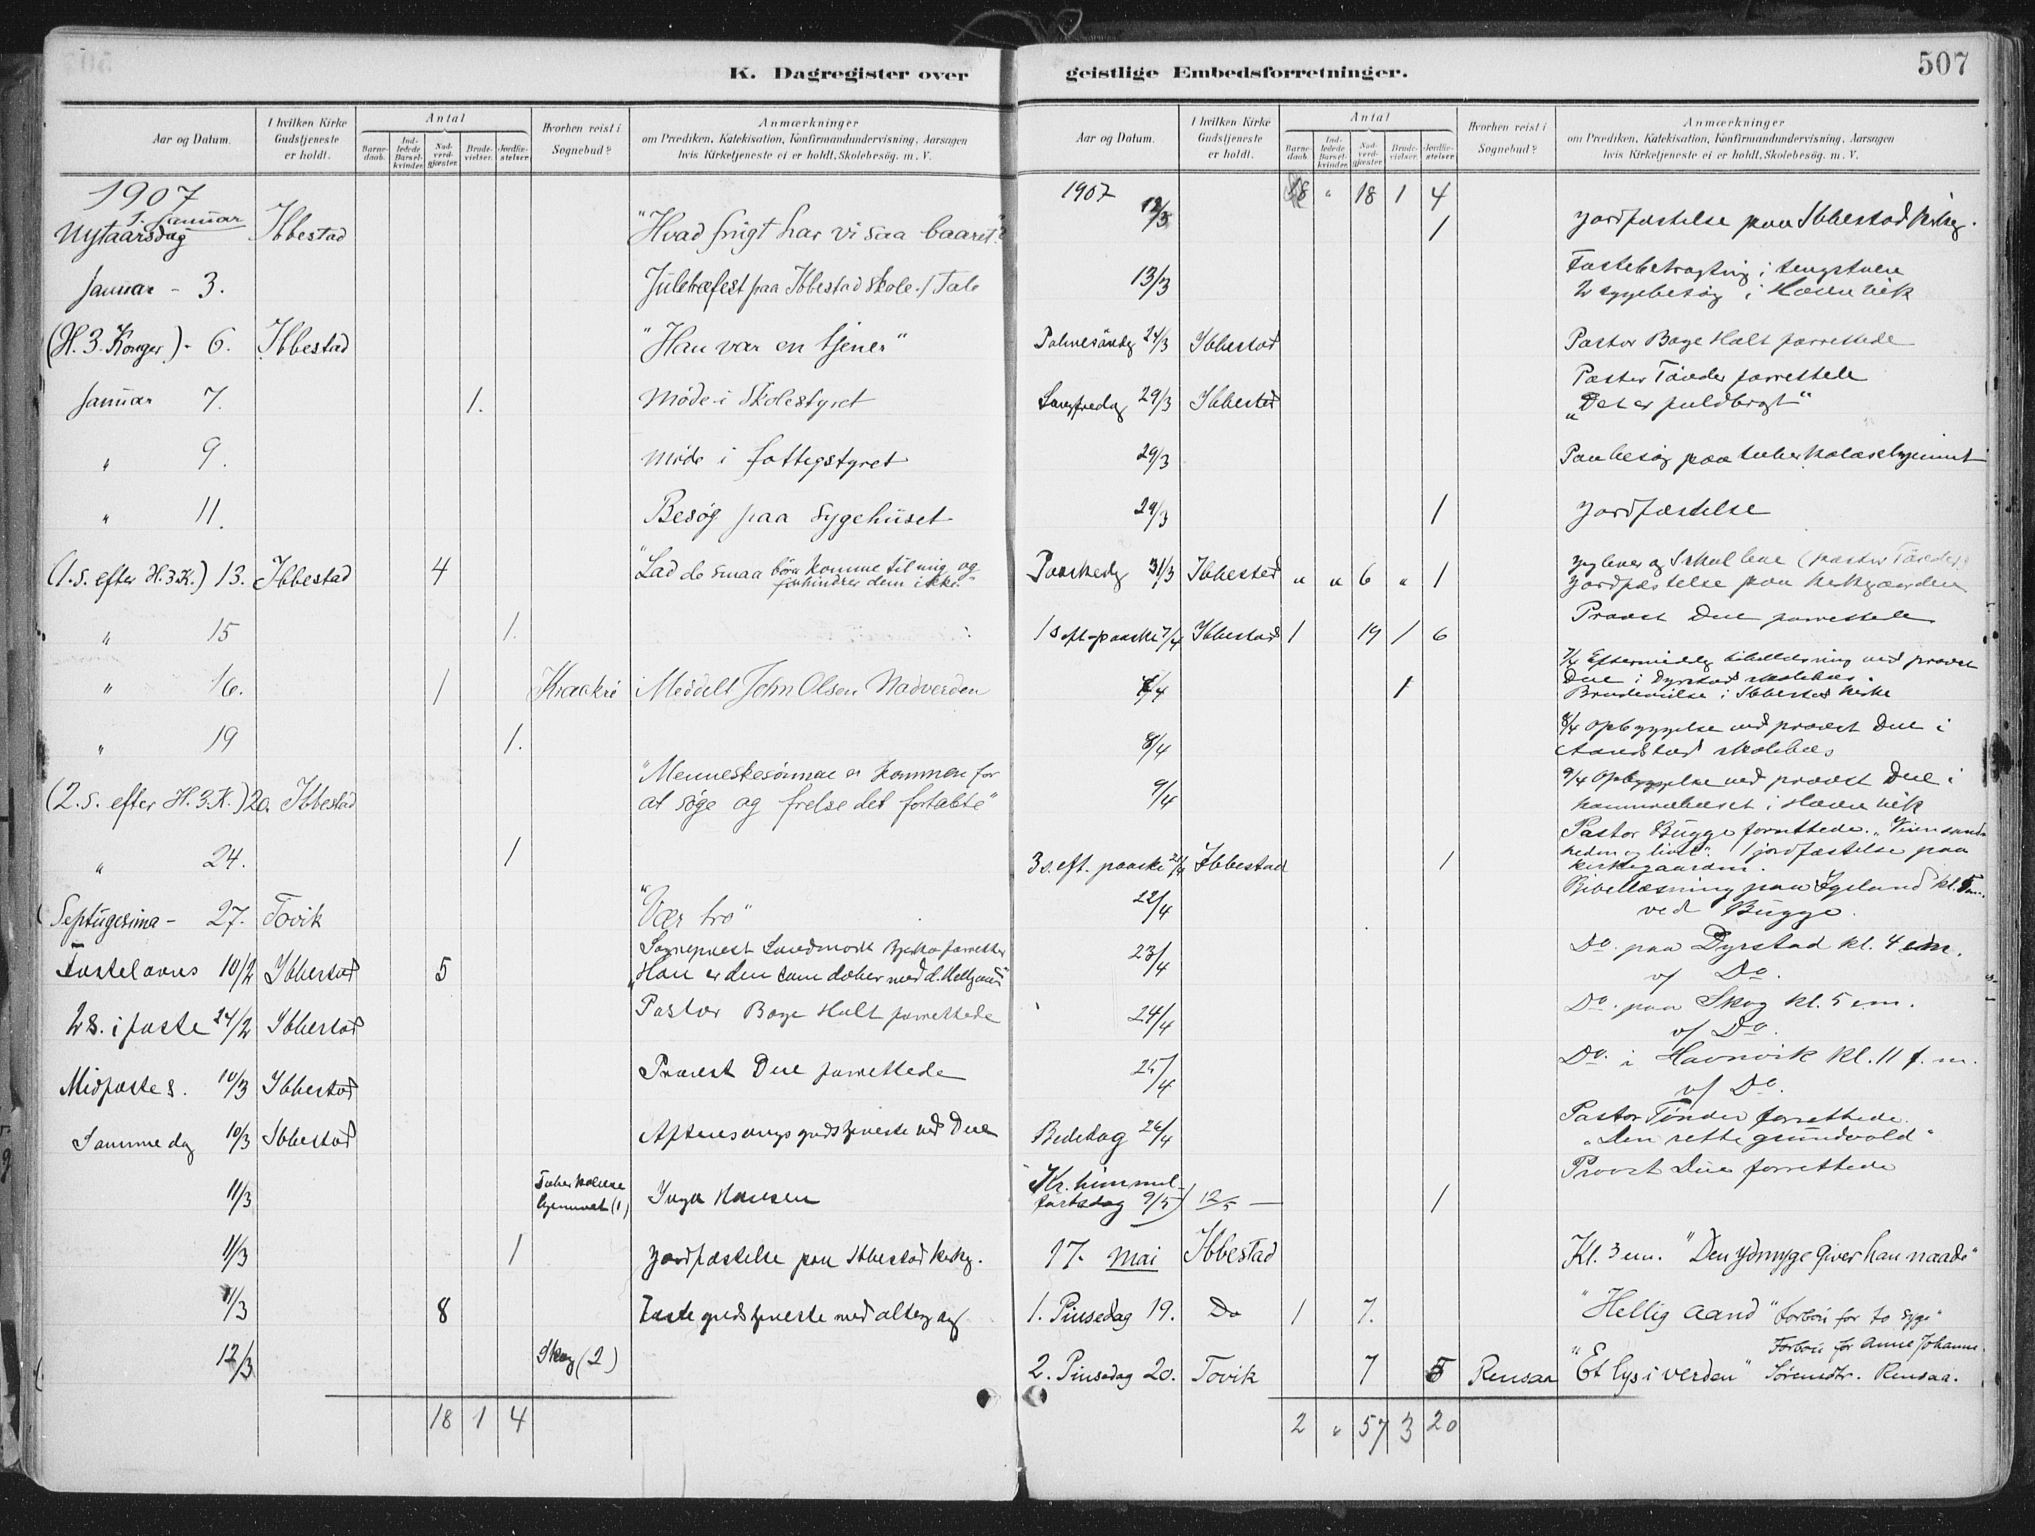 507
K. Dagregister over geistlige Embedsforretninger.
Aar og Datum.
I hvilken Kirke Gudstjeneste er holdt.
Antal
Barnedaab.
Indledede Barselkvinder.
Nadverdgjæster.
Brudevielser.
Jordfæstelser.
Hvorhen reist i Sognebud?
Anmærkninger
om Prædiken, Katekisation, Konfirmandundervisning, Aarsagen
hvis Kirketjeneste ei er holdt, Skolebesøg. m. V.
1907
1. Januar
Nytaarsdag Ibbestad "Hvad frugt har vi saa baaret?"
Januar - 3. Juletræfest paa Ibbestad Skole. / Tale
(H. 3. Konger) - 6. Ibbestad "Han var en tjener"
Januar 7. 1. Møde i Skolestyret
" 9. Møde i fattigstyret
" 11. Besøg paa Sygehuset
(1. s. efter H. 3. K.) 13. Ibbestad 4 "Lad de smaa børn komme til mig og
forhindrer dem ikke."
" 15 1.
" 16. 1 Kraakrø Meddelt John Olsen Nadverden
" 19 1.
"Menneskesønnen er kommen for
(2. s. efter H. 3. K.) 20. Ibbestad at søge og frelse det fortabte"
" 24. 1
Septuagesima - 27. Tovik "Vær tro"
Sogneprest Sandmark
Fastelavns 10/2 Ibbestad 5 "Han er den som døber med d. Helligaand"
2 s. i faste 24/2 Ibbestad Pastor Bage Holt forrettede
Midfaste s. 10/3 Ibbestad Provst Due forrettede
Samme dag 10/3 Ibbestad Aftensangsgudstjeneste ved Due
11/3 (1) Inga Hansen
11/3 1 Jordfæstelse paa Ibbestad kirkg.
11/3 8 Fastegudstjeneste med altergang
12/3 Skog (2)
18 1 4
Aar og Datum.
I hvilken Kirke Gudstjeneste er holdt.
Antal
Barnedaab.
Indledede Barselkvinder.
Nadverdgjæster.
Brudevielser.
Jordfæstelser.
Hvorhen reist i Sognebud?
Anmærkninger
om Prædiken, Katekisation, Konfirmandundervisning, Aarsagen
hvis Kirketjeneste ei er holdt, Skolebesøg. m. V.
1907 " 18 1 4
12/3 1 Jordfæstelse paa Ibbestad kirkeg.
Fastebetragtning i
13/3 2 sygebesøg i Havnvik
Palmesøndag 24/3 Ibbestad Pastor Bage Holt forrettede
Pastor Tønder forrettede
Langfredag 29/3 Ibbestad "Det er fuldbragt"
29/3 paa tuberkulosehjemmet
29/3 1 Jordfæstelse
Paaskedag 31/3 Ibbestad " " 6 " 1 Jeg lever og I skal leve (pastor Tønder)
Jordfæstelse paa kirkegaarden
Provst Due forrettede
1 s. eft. paaske 7/4 Ibbestad 1 19 1 6
7/4 Eftermiddag bibellæsning ved provst
Due i Dyrstad skolehus.
7/4 1 Brudevielse i Ibbestad kirke
8/4 8/4 Opbyggelse ved provst Due i
Aandstad skolehus
9/4 9/4 Opbyggelse ved provst Due i
kommunehuset i Havnvik
Pastor Bugge forrettede. "Veien sand-
3 s. eft. paaske 21/4 Ibbestad 1 heden og livet". 1 jordfæstelse paa
kirkegaarden.
22/4 Bibellæsning paa kl. 5 em.
ved Bugge.
23/4 Do. paa Dyrstad kl. 4 em.
v/ Do.
24/4 Do. paa Skog kl. 5 em.
v/ Do.
25/4 Do. i Havnvik kl. 11 f. m.
v/ Do.
Pastor Tønder forrettede.
Bededag 26/4 "Den rette grundvold"
Provst Due forrettede
Kr. himmel-
fartsdag 9/5) 12/5 — 1
17. Mai Ibbestad Kl. 3 em. "Den ydmyge giver han naade"
1. Pinsedag 19. Do 1 7. "Hellig aand" "Forbøn for to syge"
2. Pinsedag 20. Tovik 7 5 Rensaa "Et lys i verden" Forbøn for Anne Johanne
Sørensdtr. Rensaa.
2 " 57 3 20